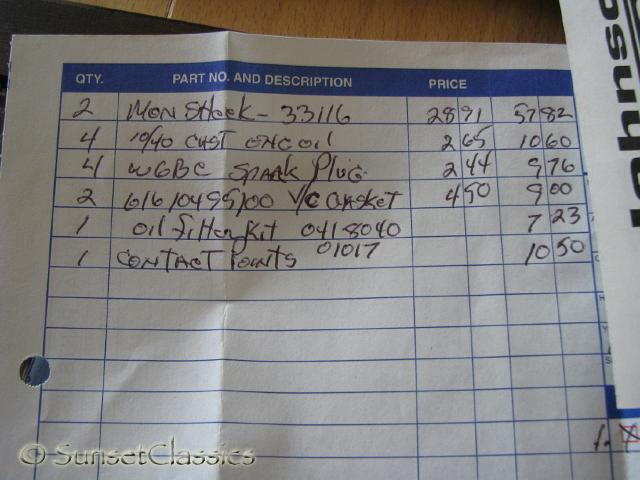 Johnso
QTY. PART NO. AND DESCRIPTION PRICE
2 MON SHOCK - 33116 28 91 57 82
4 10/40 CAST ENG OIL 2 65 10 60
4 W6BC SPARK PLUG 2 44 9 76
2 616 10495100 V/C GASKET 4 50 9 00
1 OIL FILTER KIT 0418040 7 23
1 CONTACT POINTS 01017 10 50
© SunsetClassics